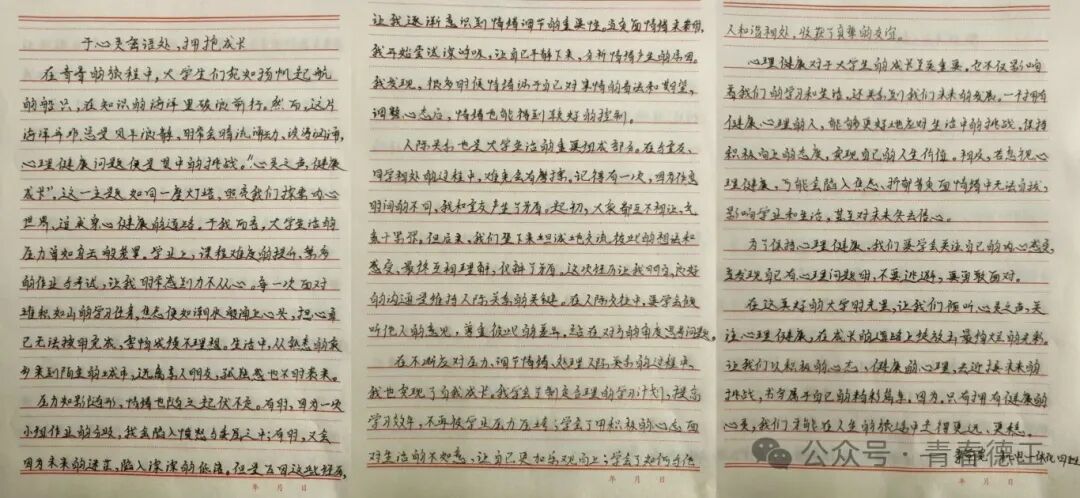 于心灵奋进处，拥抱成长
在青春的旅程中，大学生们宛如扬帆起航
的船只，在知识的海洋里破浪前行。然而，这片
海洋并非总是风平浪静，时常会暗流涌动、波涛汹涌，
心理健康问题便是其中的挑战。“心灵之声，健康
成长”，这一主题如同一座灯塔，照亮我们探索内心
世界、追求身心健康的道路。于我而言，大学生活的
压力曾如身后的
学业上，课程难度的提升、繁多
的作业与考试，让我时常感到力不从心。每一次面对
堆积如山的学习任务，焦虑便如潮水般涌上心头，担心自
己无法按时完成，害怕成绩不理想。生活中，从熟悉的家
乡来到陌生的城市，远离亲人朋友，孤独感也不时袭来。
压力如影随形，情绪也随之起伏不定。有时，因为一次
小组作业的分歧，我会陷入愤怒与委屈之中；有时，又会
因为未来的迷茫，陷入深深的低落。但是正因这些经历，
让我逐渐意识到情绪调节的重要性。当负面情绪来袭时，
我开始尝试深呼吸，让自己平静下来，分析情绪产生的原因。
我发现，很多时候情绪源于自己对事情的看法和期望，
调整心态后，情绪也能得到较好的控制。
人际关系也是大学生活的重要组成部分。在与室友、
同学相处的过程中，难免会有摩擦。记得有一次，因为作息
时间的不同，我和室友产生了矛盾。起初，大家都互不相让，气
氛十分紧张。但后来，我们坐下来坦诚地交流，彼此的想法和
感受，最终互相理解，化解了矛盾。这次经历让我明白，良好
的沟通是维持人际关系的关键。在人际交往中，要学会倾
听他人的意见，尊重彼此的差异，站在对方的角度思考问题。
在不断应对压力、调节情绪、处理人际关系的过程中，
我也实现了自我成长。我学会了制定合理的学习计划，提高
学习效率，不再被学业压力压垮；学会了用积极的心态面
对生活的不如意，让自己更加乐观向上；学会了如何与他
人和谐相处，收获了真挚的友谊。
心理健康对于大学生的成长至关重要。它不仅影响
着我们的学习和生活，还关系到我们未来的发展。一个拥有
健康心理的人，能够更好地应对生活中的挑战，保持
积极向上的态度，实现自己的人生价值。相反，若忽视心
理健康，可能会陷入焦虑、抑郁等负面情绪中无法自拔，
影响学业和生活，甚至对未来失去信心。
为了保持心理健康，我们要学会关注自己的内心感受，
当发现自己有心理问题时，不要逃避，要勇敢面对。
在这美好的大学时光里，让我们倾听心灵之声，关
注心理健康，在成长的道路上绽放出最绚烂的光彩。
让我们以积极的心态、健康的心理，去迎接未来的
挑战，书写属于自己的精彩篇章。因为，只有拥有健康的
心灵，我们才能在人生的旅途中走得更远、更稳。
年 月 日
年 月 日
年 月 日
公众号·青春德正